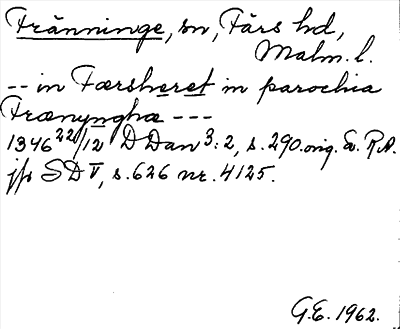 Fränninge, sn, Färs hd,
Malm. l.
-- in Færsheret in parochia
Frænyngha ---
1346 22/12 DDan 3:2, s. 290. orig. Sv. R.A.
jfr SD V, s. 626 nr. 4125.
G.E. 1962.